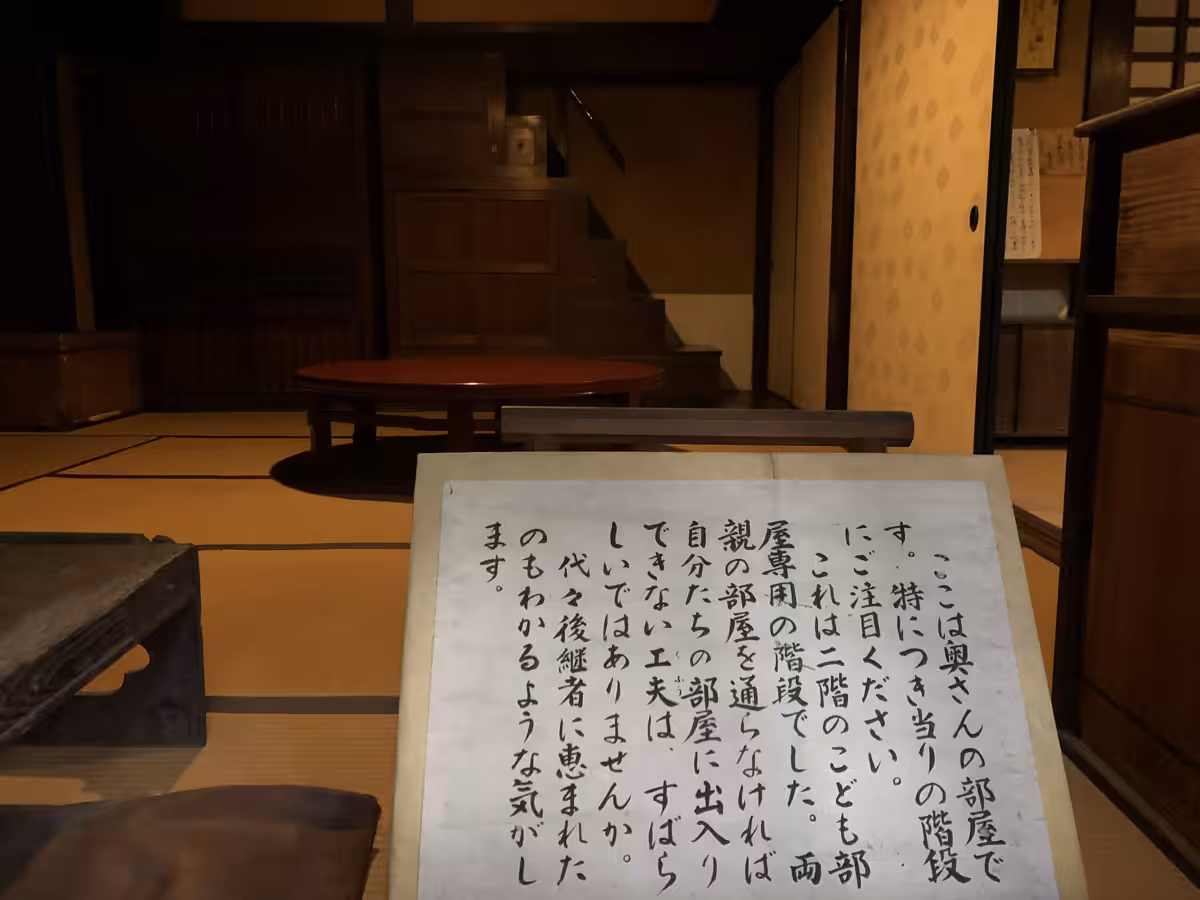 ここは奥さんの部屋で
す。特につき当りの階段
にご注目ください。
これは二階のこども部
屋専用の階段でした。両
親の部屋を通らなければ
自分たちの部屋に出入り
できない工夫は、すばら
しいではありませんか。
代々後継者に恵まれた
のもわかるような気がし
ます。